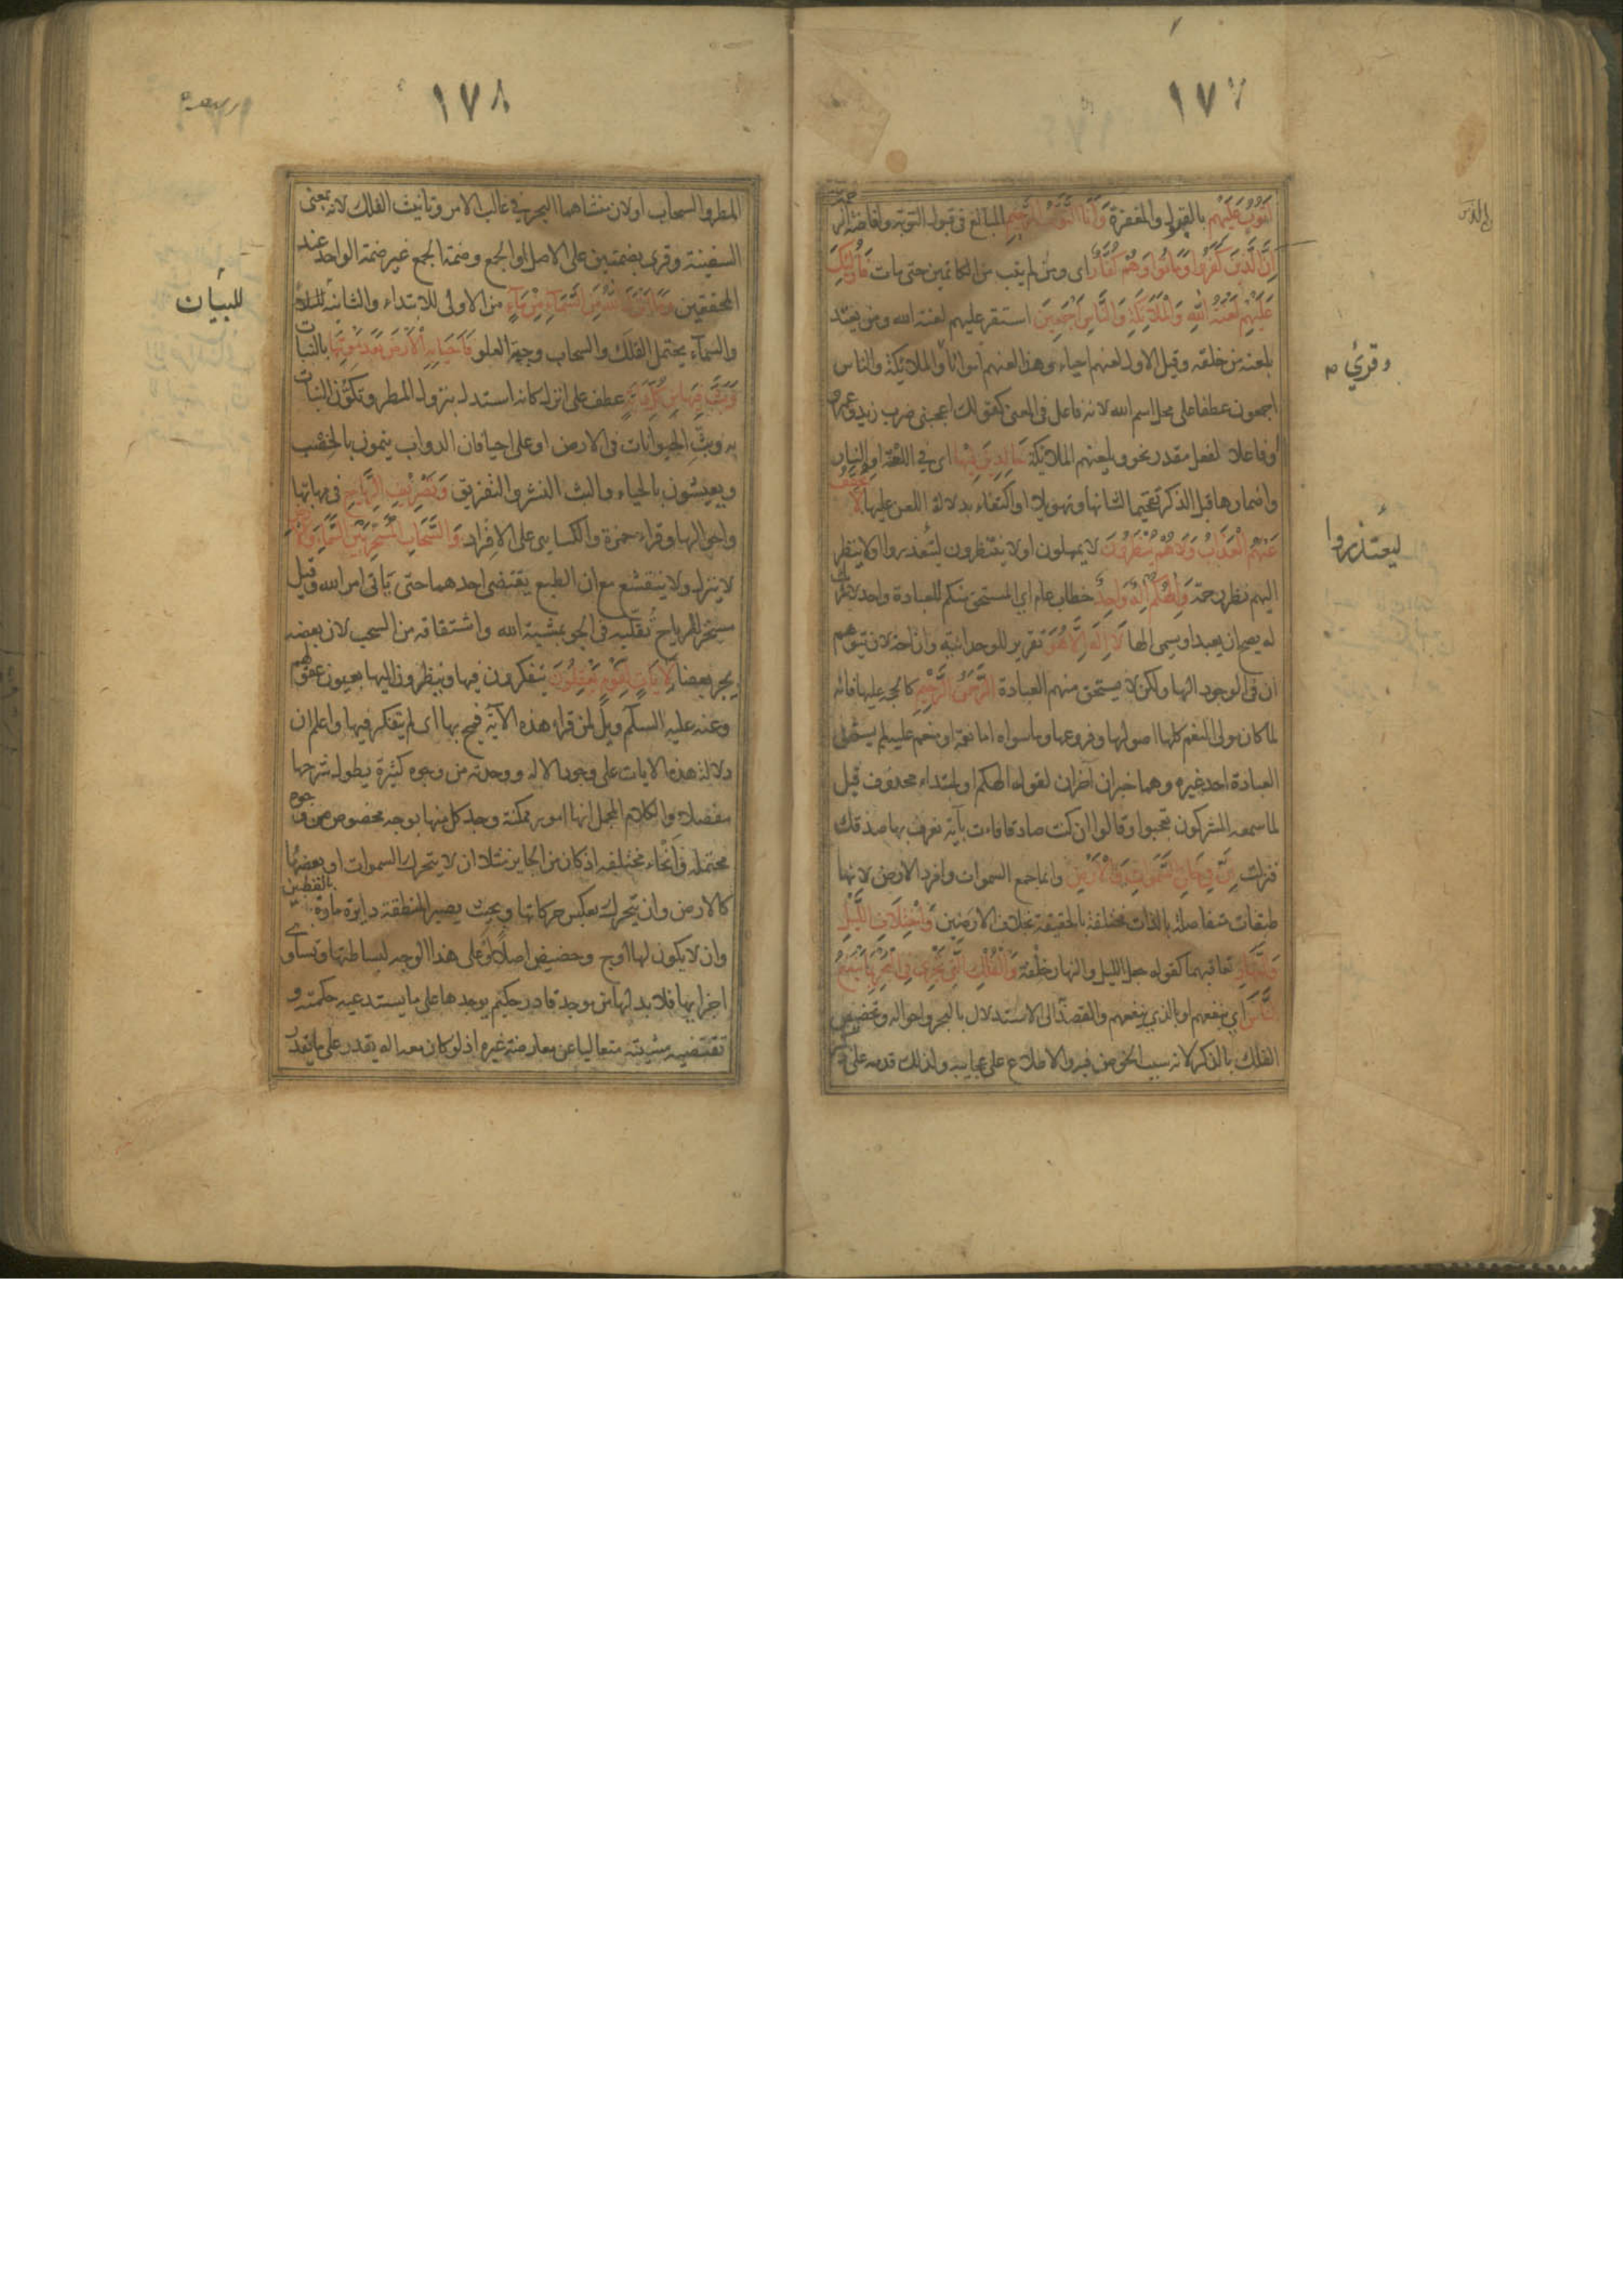 ١٧٧
اتوب عليهم بالقبول والمغفرة وانا التواب الرحيم المبالغ في قبول التوبة وافاضة الرحمة
ان الذين كفروا وماتوا وهم كفار اى ومن لم يتب من الكاتمين حتى مات فاولئك
عليهم لعنة الله والملائكة والناس اجمعين استقر عليهم لعنة الله ومن يعتد
بلعنه من خلقه وقيل الاول لعنهم احياء وهذا لعنهم امواتا والملائكة والناس
اجمعون عطفا على محل اسم الله لانه فاعل في المعنى كقولك اعجبنى ضرب زيد وعمرو
اوفاعلا لفعل مقدر نحو ويلعنهم الملائكة خالدين فيها اى في اللعنة او النار
واضمارها قبل الذكر تفخيما لشانها وتهويلا او اكتفاء بدلالة اللعن عليها لا يخفف
عنهم العذاب ولا هم ينظرون لا يمهلون او لا ينتظرون ليعتذروا او لا ينظر
اليهم نظر رحمة والهكم اله واحد خطاب عام اي المستحق منكم للعبادة واحد لا شريك
له يصح ان يعبد او يسمى الها لا اله الا هو تقرير للوحدانية وازاحة لان يتوهم
ان في الوجود الها ولكن لا يستحق منهم العبادة الرحمن الرحيم كالحجة عليها فانه
لما كان مولى النعم كلها اصولها وفروعها وماسواه اما نعمة او منعم عليه لم يستحق
العبادة احد غيره وهما خبران اخران لقوله الهكم او لمبتداء محذوف قيل
لما سمعه المشركون تعجبوا وقالوا ان كنت صادقا فات بآية نعرف بها صدقك
فنزلت ان في خلق السموات والارض وانما جمع السموات وافرد الارض لانها
طبقات متفاصلة بالذات مختلفة بالحقيقة بخلاف الارضين واختلاف الليل
والنهار تعاقبهما كقوله جعل الليل والنهار خلفة والفلك التي تجرى في البحر بما ينفع
الناس اي ينفعهم او بالذي ينفعهم والقصد الى الاستدلال بالبحر واحواله وتخصيص
الفلك بالذكر لانه سبب الخوض فيه والاطلاع على عجايبه ولذلك قدمه على ذكر
وقرئ
ليعتذروا
١٧٨
المطر والسحاب او لان منشاهما البحر في غالب الامر وتانيث الفلك لانه بمعنى
السفينة وقرى بضمتين على الاصل او الجمع وضمة الجمع غير ضمة الواحد عند
المحققين وما انزل الله من السماء من ماء من الاولى للابتداء والثانية للبيان
والسمآء يحتمل الفلك والسحاب وجهة العلو فاحيا به الارض بعد موتها بالنبات
وبث فيها من كل دابة عطف على انزل كانه استدل بنزول المطر وتكون النبات
به وبث الحيوانات في الارض او على احيا فان الدواب ينمون بالخصب
ويعيشون بالحياء والبث النشر والتفريق وتصريف الرياح في مهابها
واحوالها وقراء حمزة والكسايى على الافراد والسحاب المسخر بين السماء والارض
لا ينزل ولا ينقشع مع ان الطبع يقتضى احدهما حتى ياتى امر الله وقيل
مسخر للرياح تقلبه في الجو بمشية الله واشتقاقه من السحب لان بعضه
يجر بعضا لآيات لقوم يعقلون يتفكرون فيها وينظرون اليها بعيون عقولهم
وعنه عليه السلم ويل لمن قراء هذه الآية فمج بها اى لم يتفكر فيها واعلم ان
دلالة هذه الايات على وجود الاله ووحدته من وجوه كثيرة يطول شرحها
مفصلا والكلام المجمل انها امور ممكنة وجد كل منها بوجه مخصوص من وجوه
محتملة وانحاء مختلفه اذ كان من الجايز مثلا ان لا يتحرك السموات او بعضها
كالارض وان يتحرك بعكس حركاتها وبحيث يصير المنطقة دايرة مارة بالقطبين
وان لا يكون لها اوج وحضيض اصلا او على هذا الوجه لبساطتها وتساوى
اجزايها فلا بد لها من موجد قادر حكيم يوجدها على ما يستدعيه حكمته و
تقتضيه مشيته متعاليا عن معارضة غيره اذ لو كان معه اله يقدر على ما يقدر
للبيان